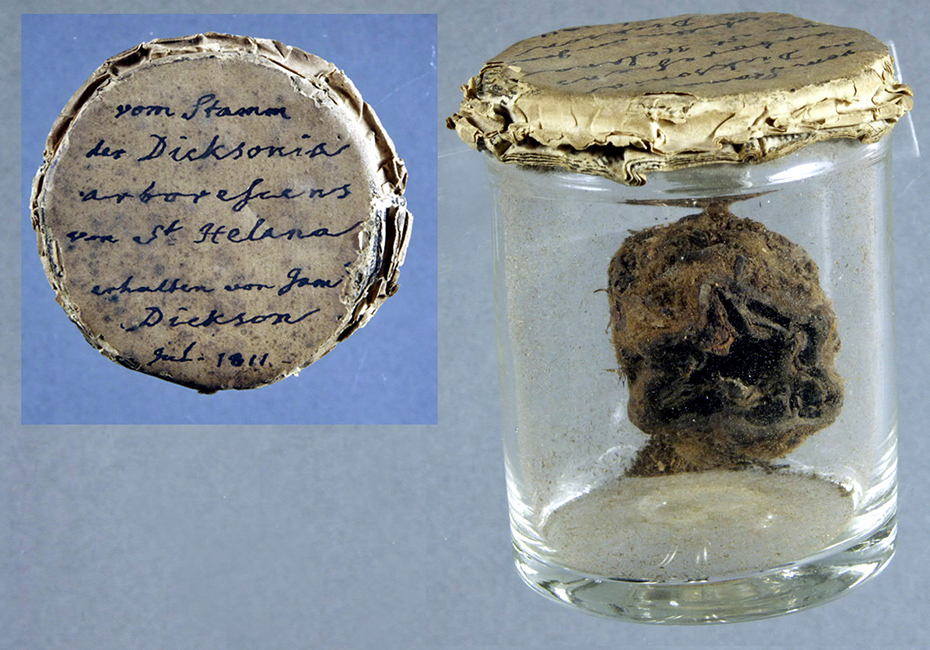 vom Stamm
der Dicksonia
arborescens
von St Helena
erhalten von Jam
Dickson
Jul. 1811.